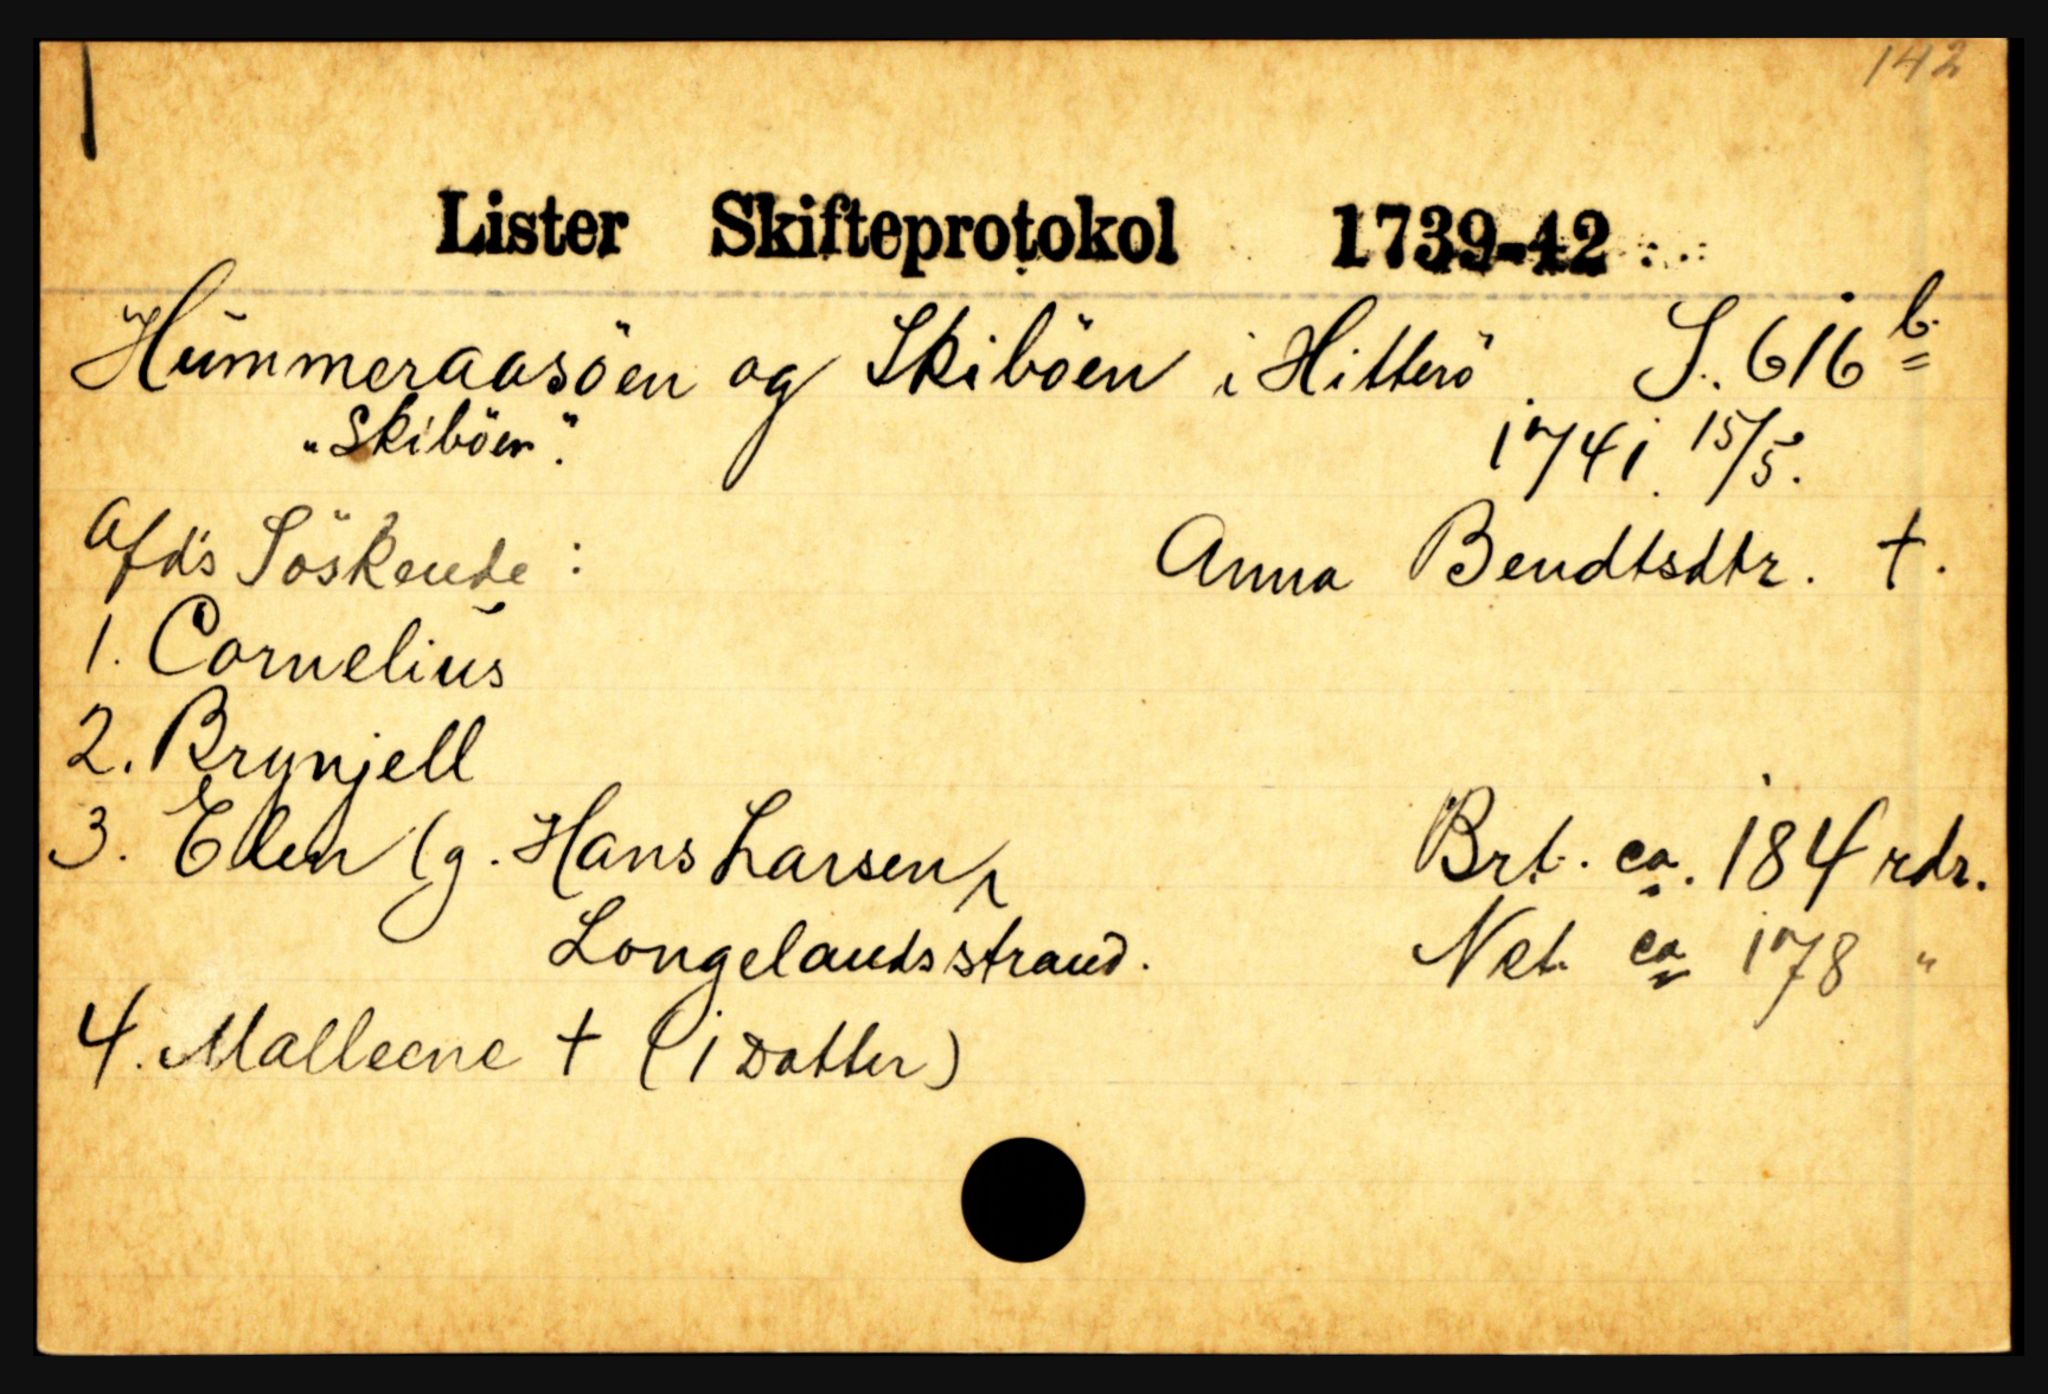 142
Lister Skifteprotokol 1739-42
Hummeraasöen og Skiböen i Hitterö S. 616 b.
"Skiböen". 1741 15/5.
Afd's Söskende: Anna Bendtsdtr. †.
1. Cornelius
2. Brynjell
3. Elen (g. Hans Larsen, Brt. ca. 184 rdr.
Longelandsstrand. Net. ca 178 "
4. Malleene † (1 Datter)